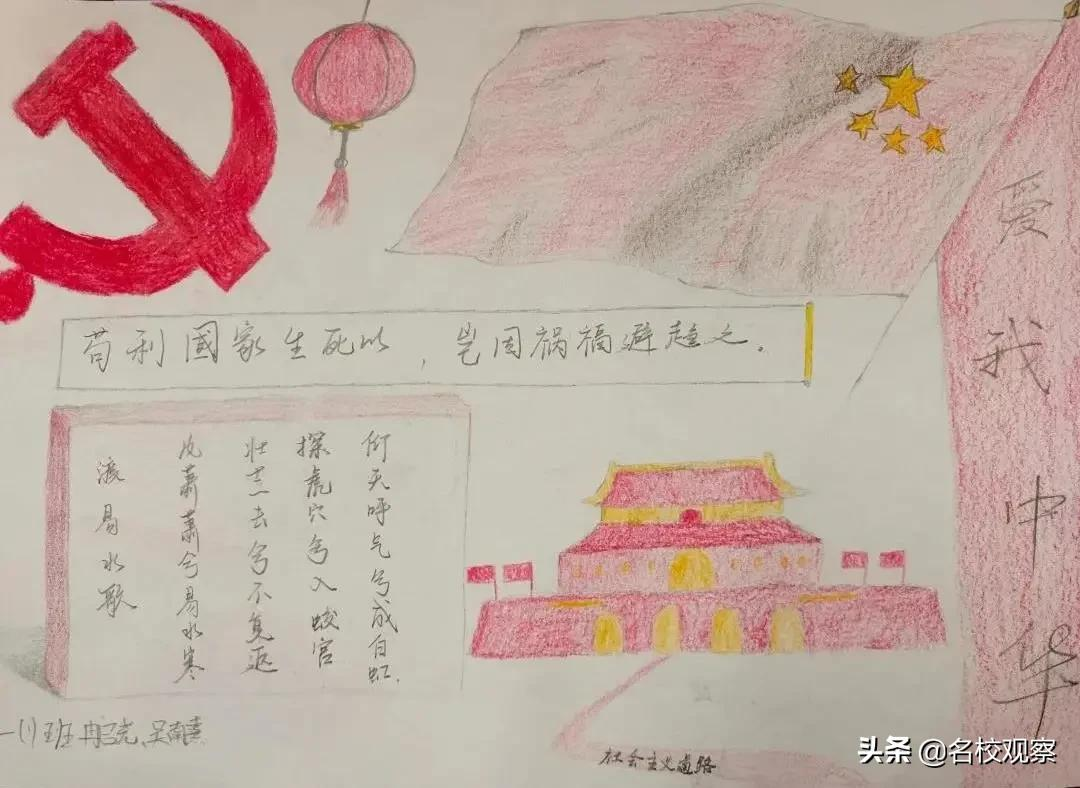 苟利國家生死以，岂因祸福避趋之。
渡易水歌
风蕭蕭兮易水寒
壮士一去兮不复返
探虎穴兮入蛟宫
仰天呼气兮成白虹.
爱我中华
一(1)班
社会主义道路
头条 @名校观察